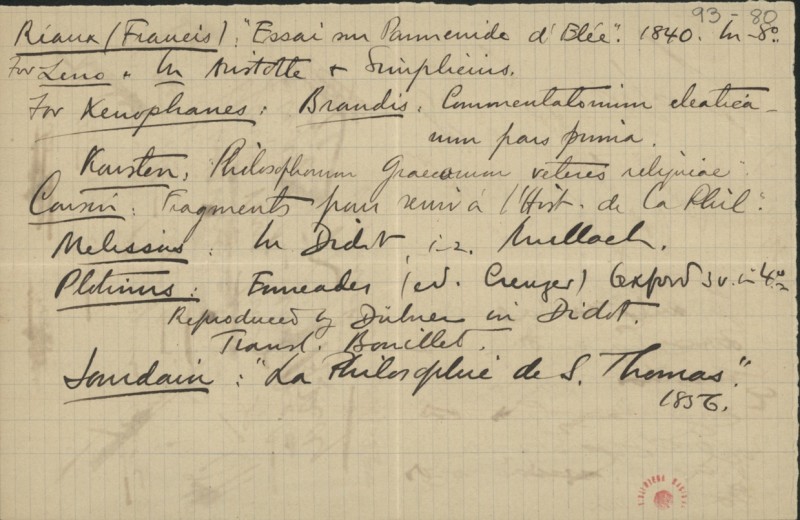 93-80
Riaux (Francis). "Essai sur Parmenide d'Elée". 1840. In-8º.
For Zeno. In Aristotle & Simplicius.
For Xenophanes: Brandis. Commentationum eleatica-
rum pars prima.
Karsten. Philosophorum Graecorum veteres reliquiae.
Cousin. Fragments pour servir à l'Hist. de la Phil".
Melissus: In Didot, i-2. Mullach.
Plotinus: Enneades (ed. Creuzer) Oxford 3v. in-4º
Reproduced by Dübner in Didot.
Transl. Bouillet.
Jourdain: "La Philosophie de S. Thomas".